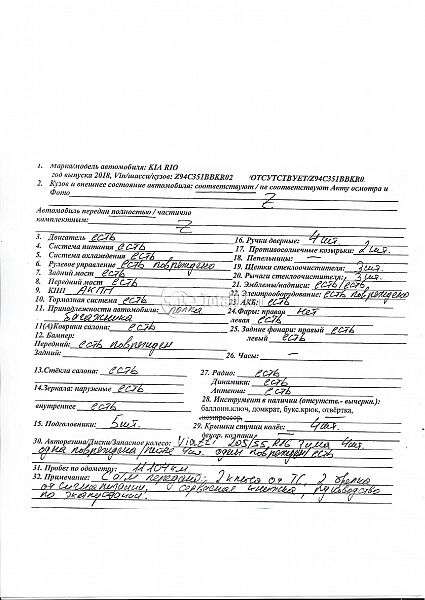 1. Марка/модель автомобиля: KIA RIO
год выпуска 2018, Vin/шасси/кузов: Z94C351BBKR02 /ОТСУТСТВУЕТ/Z94C351BBKR0
2. Кузов и внешнее состояние автомобиля: соответствуют / не соответствуют Акту осмотра и
Фото Z
Автомобиль передан полностью / частично
комплектным: Z
3. Двигатель есть
4. Система питания есть
5. Система охлаждения есть
6. Рулевое управление есть повреждено
7. Задний мост есть
8. Передний мост есть
9. КПП АКПП
10. Тормозная система есть
11. Принадлежности автомобиля: полка
багажника
11(А)Коврики салона: есть
12. Бампер:
Передний: есть поврежден
Задний:
13.Стёкла салона: есть
14.Зеркала: наружные есть
внутреннее есть
15. Подголовники: 5 шт.
16. Ручки дверные: 4 шт.
17. Противосолнечные козырьки: 2 шт.
18. Пепельницы: —
19. Щетки стеклоочистителя: 3 шт.
20. Рычаги стеклоочистителя: 3 шт.
21. Эмблемы/надписи: есть/есть
22. Электрооборудование: есть повреждено
23. АКБ: есть
24.Фары: правая нет
левая есть
25. Задние фонари: правый есть
левый есть
26. Часы: —
27. Радио: есть
Динамики: есть
Антенна: есть
28. Инструмент в наличии (отсутств.- вычеркн.):
баллонн.ключ, домкрат, букс.крюк, отвёртка,
компрессор.
29. Крышки ступиц колёс: 4 шт.
декор. колпаки:
30. Авторезина/Диски/Запасное колесо: Viatti 205/55 R16 зима 4шт.
одна повреждена, литые 4шт. один поврежден/есть
31. Пробег по одометру: км
32. Примечание: С а/м переданы: 2 ключа от ТС, 2 брелка
от сигнализации, сервисная книжка, руководство
по эксплуатации.